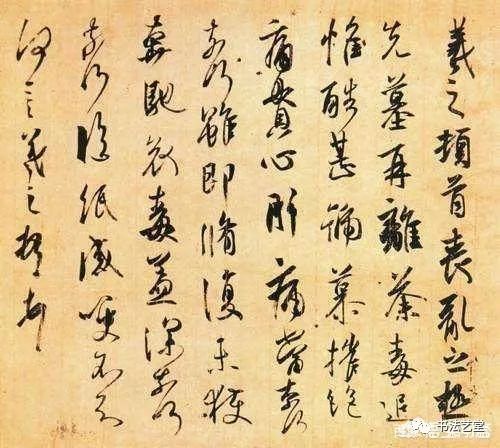 羲之頓首喪亂之極
先墓再離荼毒追
惟酷甚號慕摧絕
痛貫心肝痛當奈何
奈何雖即脩復未獲
奔馳哀毒益深奈何
奈何臨紙感哽不知
何言羲之頓首
书法艺堂